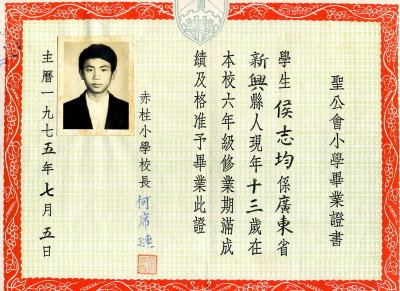 聖公會小學畢業證書
學生侯志均係廣東省
新興縣人現年十三歲在
本校六年級修業期滿成
績及格准予畢業此證
赤柱小學校長何席璉
主曆一九七五年七月五日